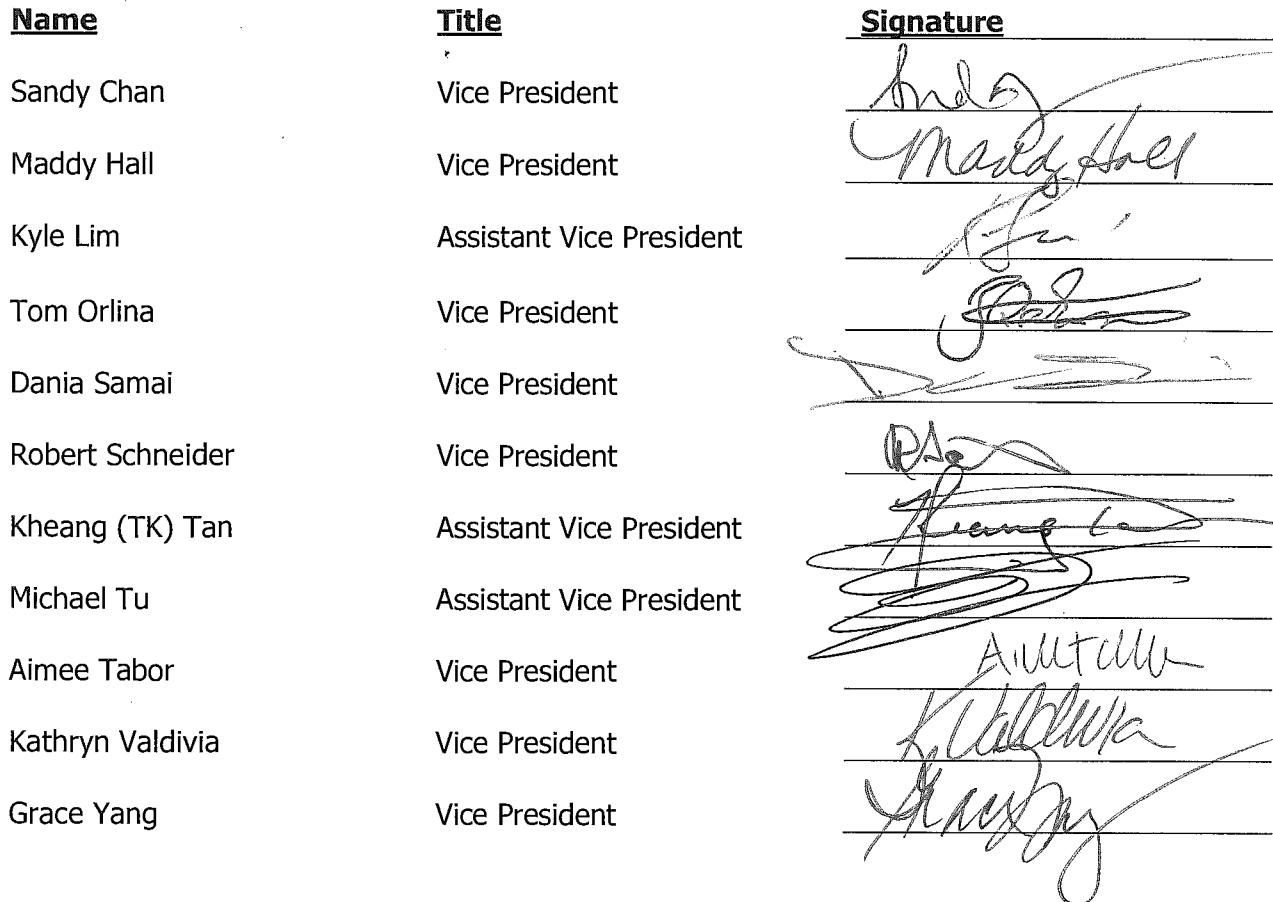 Name Title Signature
Sandy Chan Vice President
Maddy Hall Vice President Maddy Hall
Kyle Lim Assistant Vice President
Tom Orlina Vice President
Dania Samai Vice President
Robert Schneider Vice President
Kheang (TK) Tan Assistant Vice President
Michael Tu Assistant Vice President
Aimee Tabor Vice President
Kathryn Valdivia Vice President K Valdivia
Grace Yang Vice President